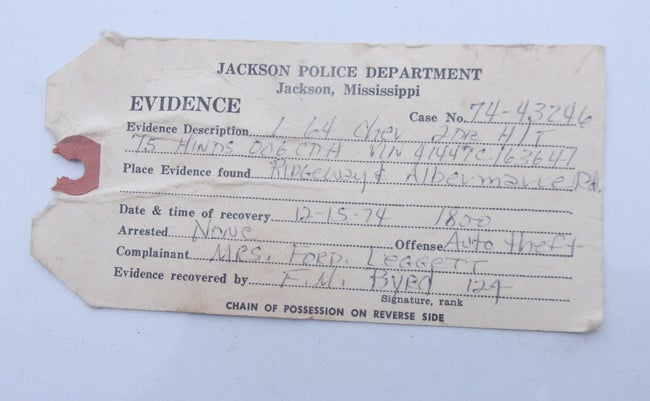 JACKSON POLICE DEPARTMENT
Jackson, Mississippi
EVIDENCE
Case No. 74-43246
Evidence Description 1-64 Chev 2DR H/T
75 HINDS 006CDA VIN 41447C163647
Place Evidence found Ridgeway & Albermarle Rd.
Date & time of recovery 12-15-74 1800
Arrested None Offense Auto theft
Complainant MRS. FORD. LEGGETT
Evidence recovered by F.N. Byrd 124
Signature, rank
CHAIN OF POSSESSION ON REVERSE SIDE